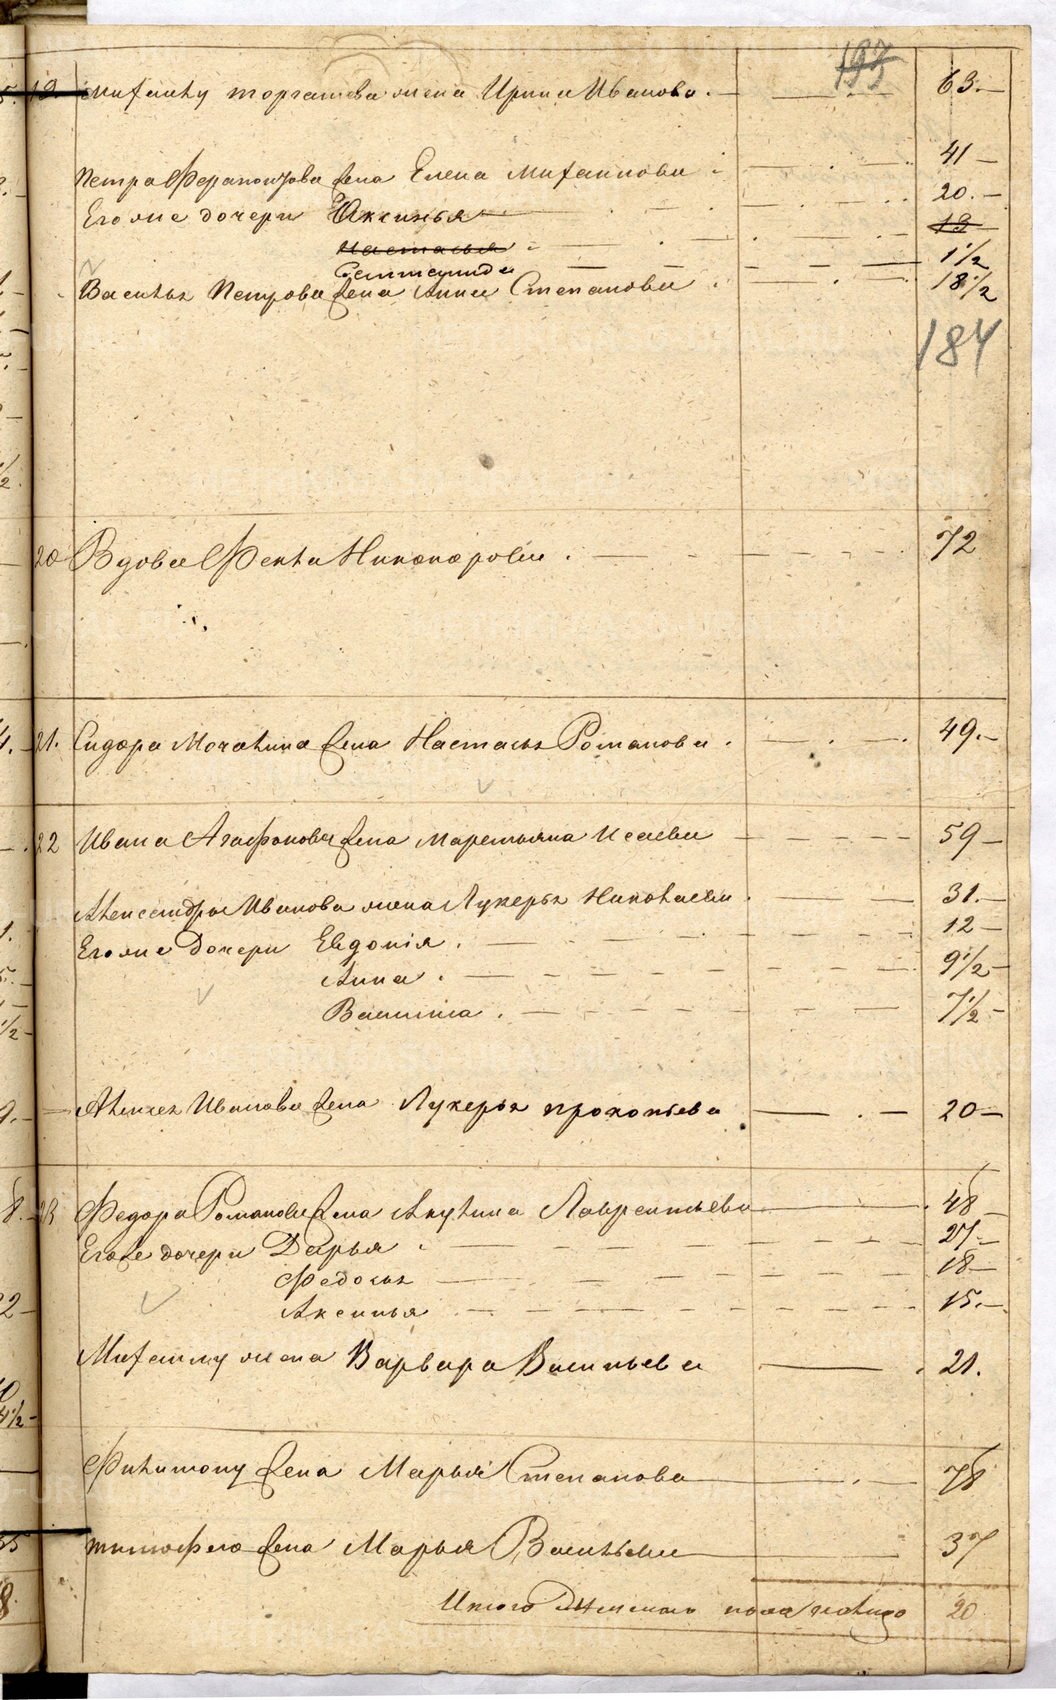 197
19. Михаилу Торгашева жена Ирина Иванова. 63.
Петра Ферапонтова жена Елена Михаилова 41
Его же дочери Аксинья 20.
Настасья 13
Степанида 1 1/2
Василья Петрова жена Анна Степанова 18 1/2
184
20 Вдова Фекла Никанорова. 72
21. Сидора Мочалина жена Настасья Романова. 49.
22 Ивана Агафонова жена Маремьяна Исаева 59
Александра Иванова жена Лукерья Николаева. 31.
Его же дочери Евдокія. 12
Анна. 9 1/2
Васинька. 7 1/2
Алексея Иванова жена Лукерья Прокопьева 20
23 Федора Романова жена Акулина Лаврентьева 48
Его же дочери Дарья 27
Федосья 18
Аксинья 15.
Михаилу жена Варвара Васильева 21.
Филимону жена Марья Степанова 78
Тимофея жена Марья Васильева 37
Итого женского пола налицо 20